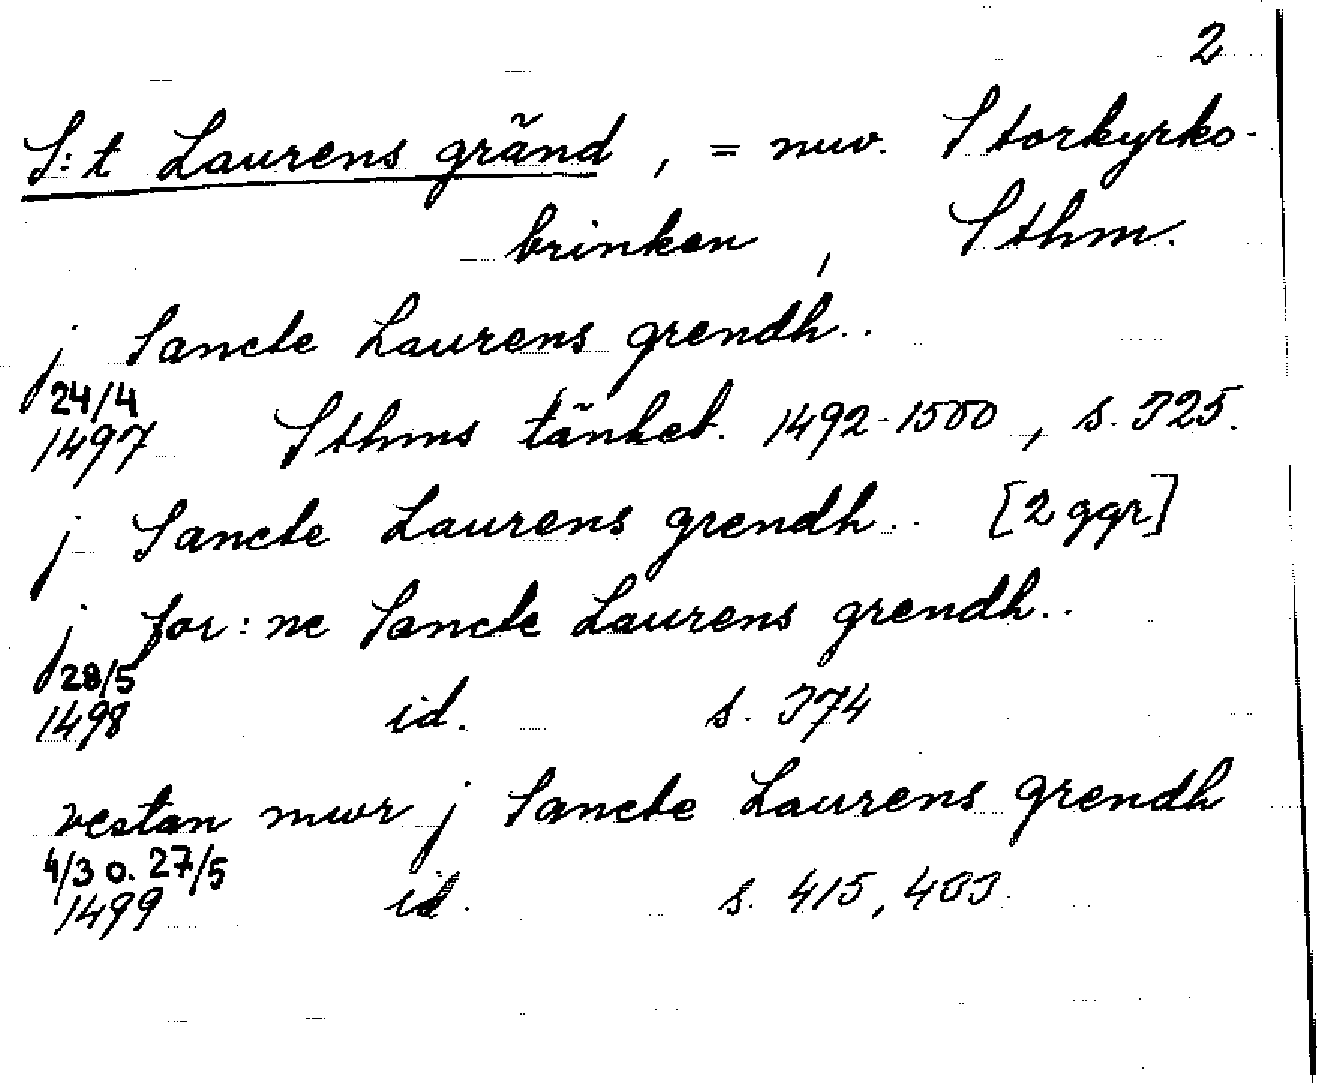 2
S:t Laurens gränd, = nuv. Storkyrko-
brinken, Sthm.
j Sancte Laurens grendh..
24/4
1497 Sthms tänkeb. 1492-1500, s. 325.
j Sancte Laurens grendh.. [2 ggr]
j for:ne Sancte Laurens grendh..
28/5
1498 id. s. 374
vestan mwr j Sancte Laurens grendh
4/3 o. 27/5
1499 id. s. 415,